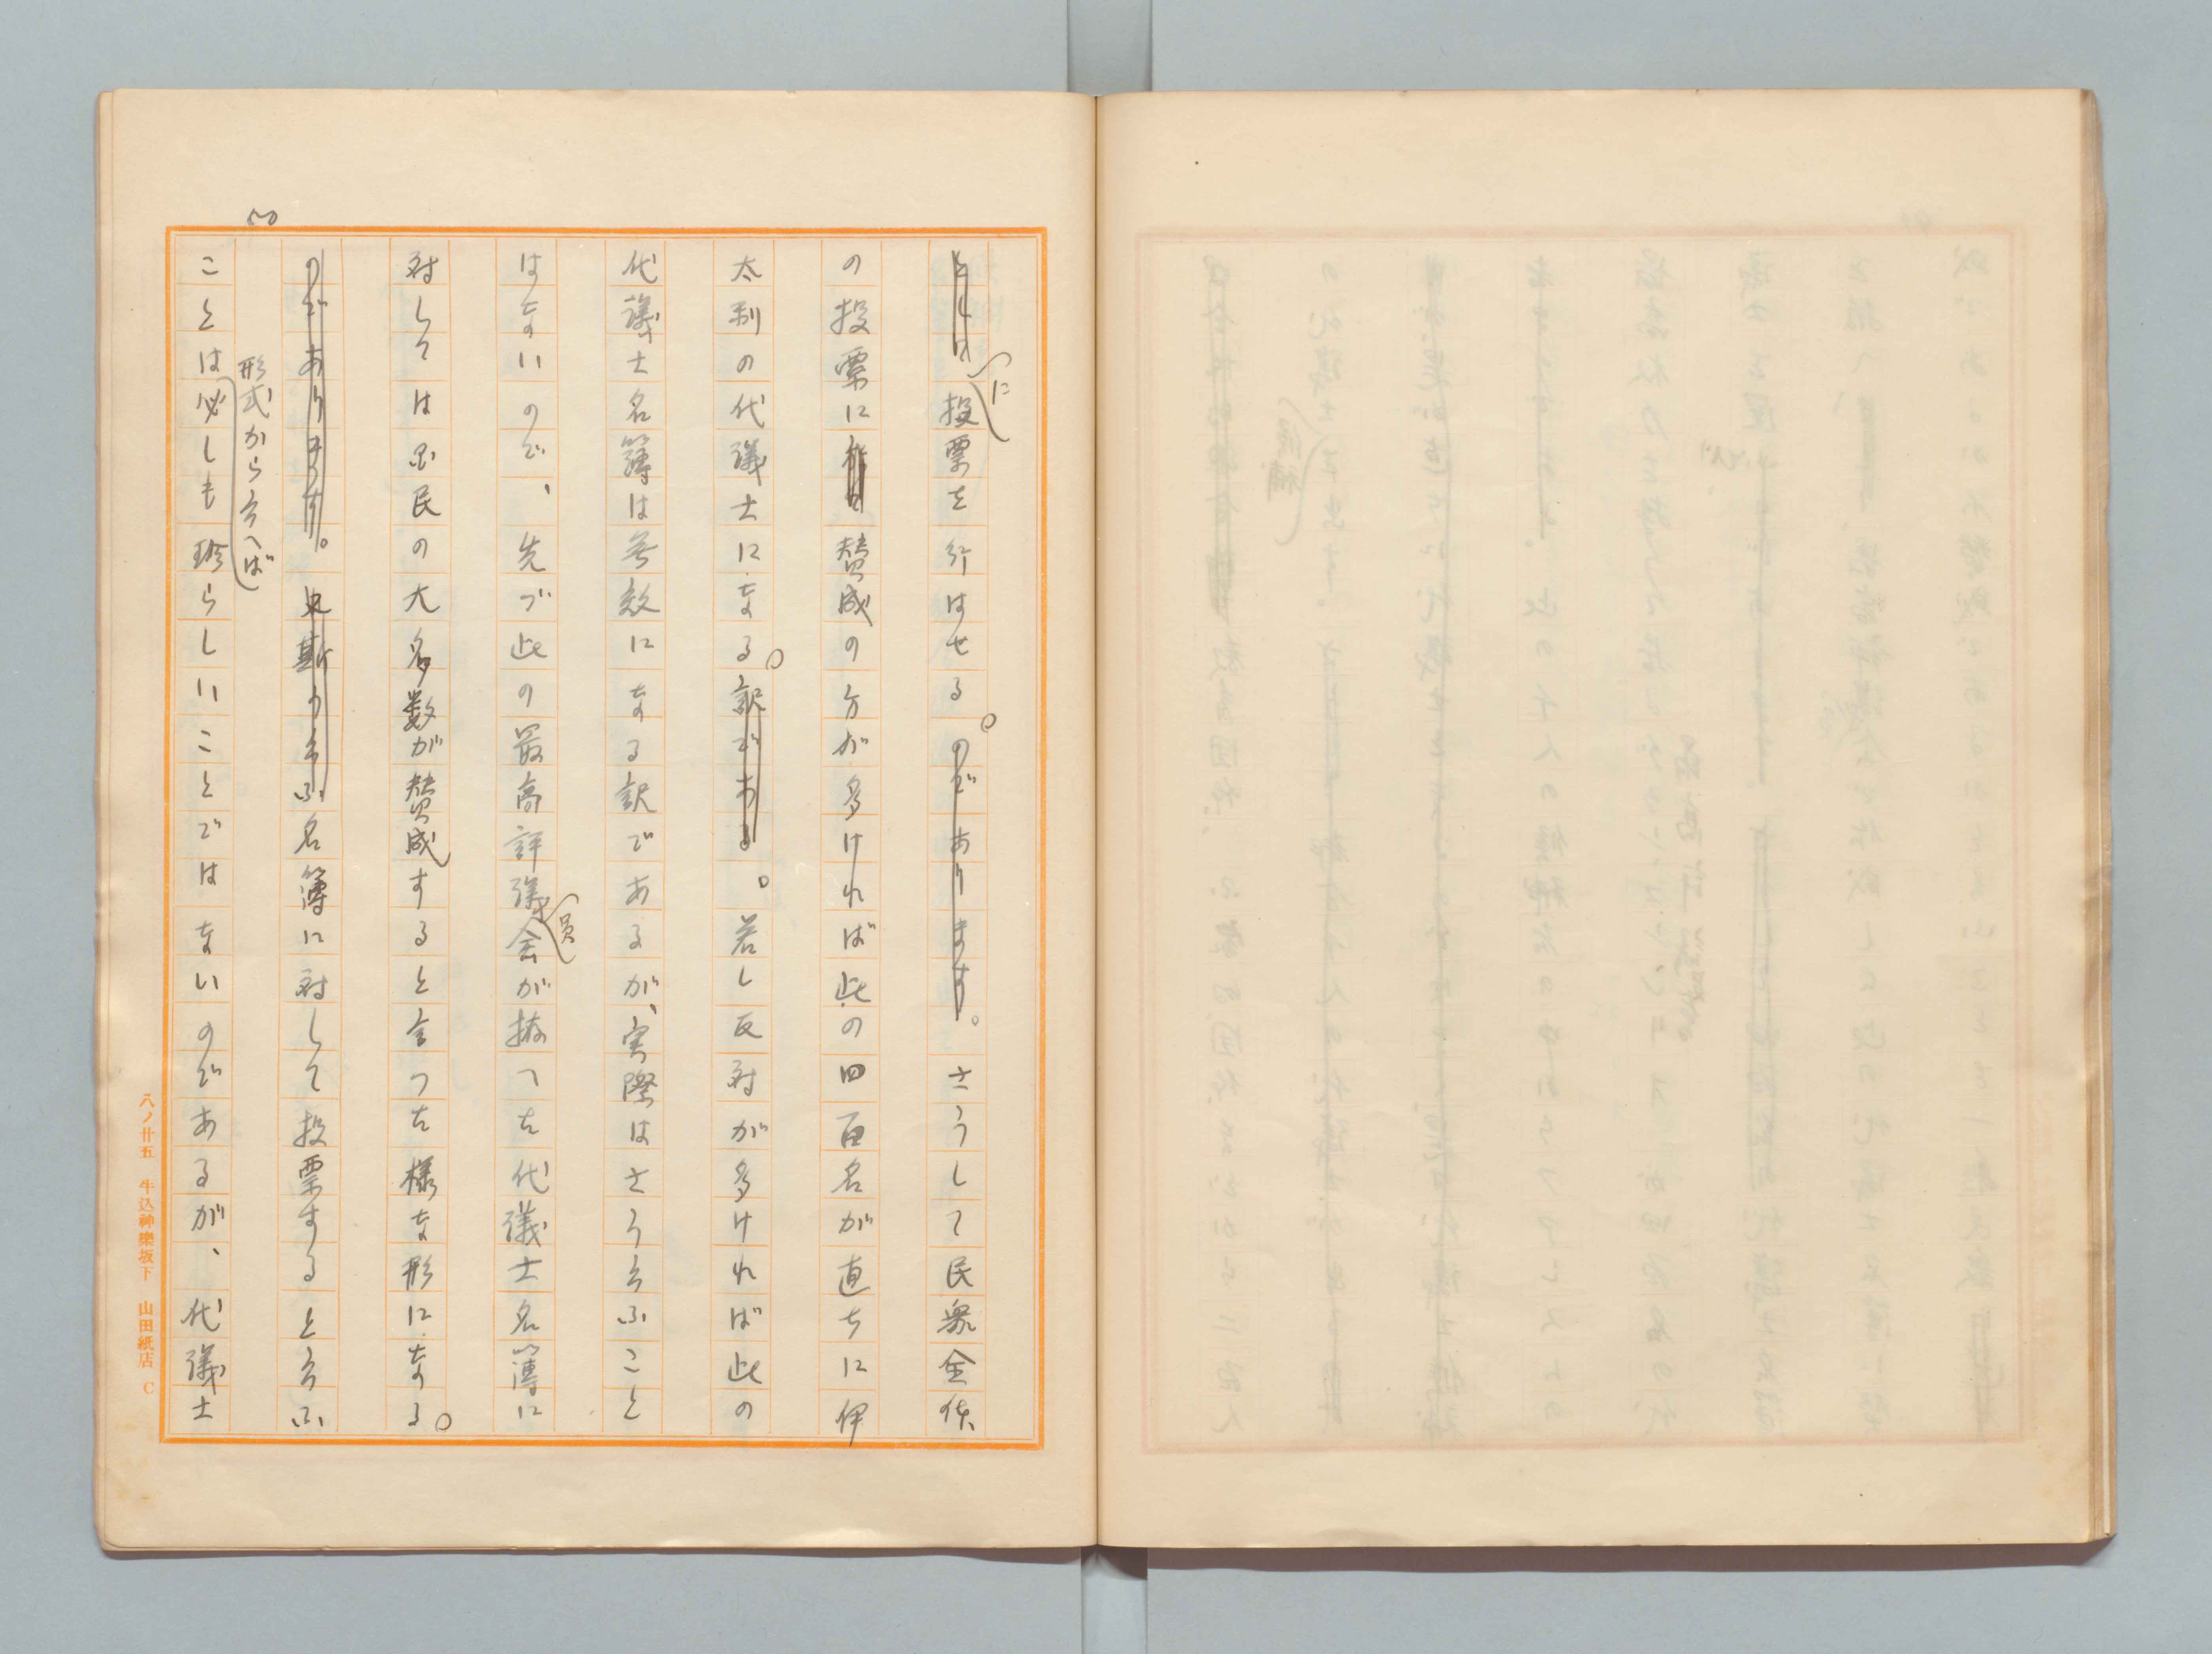 に
投票を行はせる。のであります。さうして民衆全体
の投票に賛成の方が多ければ此の四百名が直ちに伊
太利の代議士になる。訳である。若し反対が多ければ此の
代議士名簿は無效になる訳であるが、実際はさう云ふこと
はないので、先づ此の最高評議会が拵へた代議士名簿に
員
対しては国民の大多数が賛成すると言つた様な形になる。
のであります。斯う云ふ名簿に対して投票すると云ふ
形式から云へば
ことは必しも珍らしいことではないのであるが、代議士
50
八ノ廿五 牛込神樂坂下 山田紙店 C